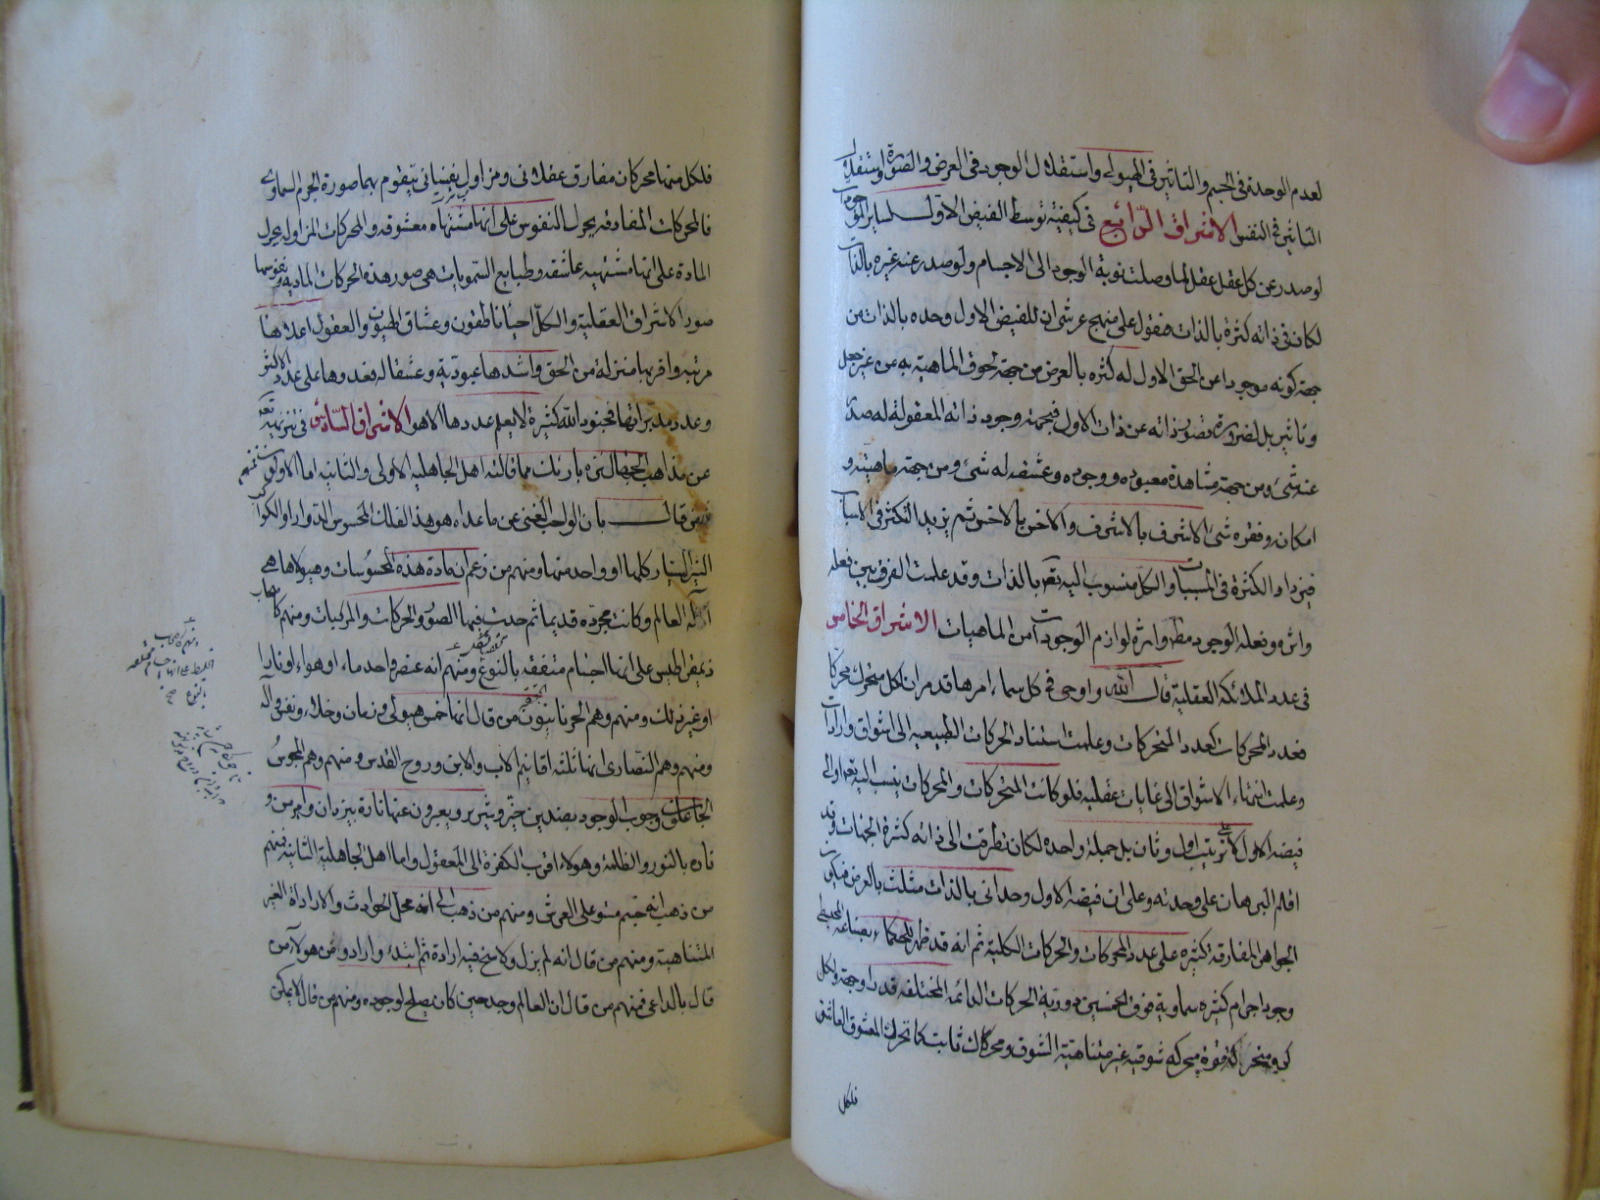 لعدم الوحدة فى الجسم والتاثير فى الهيولى واستقلال الوجود فى العرض والصورة واستقلال
التاثير فى النفس الاشراق الرابع فى كيفية توسط الفيض الاول لساير الموجودات
لو صدر عن كل عقل عقل لما وصلت نوبة الوجود الى الاجسام ولو صدر عنه غيره بالذات
لكان فى ذاته كثرة بالذات فنقول على منهج عرشى ان للفيض الاول وحده بالذات من
جهة كونه موجودا عن الحق الاول له كثره بالعرض من جهة لحوق الماهية به من غير جعل
وتاثير بل لضرورة قصور ذاته عن ذات الاول فبجهة وجود ذاته المعقولة له صدر
عنه شئ ومن جهة مشاهدة معبوده ووجوده وعشقه له شئ ومن جهة ماهيته و
امكانه وفقره شئ الاشرف بالاشرف والاخس بالاخس ثم يزيد التكثر فى الاسباب
فيزداد الكثرة فى المسببات والكل منسوب اليه تعه بالذات وقد علمت الفرق بين فعله
واثره وفعله الوجود مط واثره لوازم الوجودات من الماهيات الاشراق الخامس
فى عدد الملائكة العقلية قال الله واوحى فى كل سماء امرها قد مر ان لكل متحرك محركا
فعدد المحركات كعدد المتحركات وعلمت استناد الحركات الطبيعيه الى اشواق وارادات
وعلمت انتهاء الاشواق الى غايات عقليه فلو كانت المتحركات والمحركات ينسب اليه تعه اولى
فيضه الاول لا على ترتيب اول وثان بل جملة واحدة لكان تطرقت الى ذاته كثرة الجهات وقد
اقام البرهان على وحدته وعلى ان فيضه الاول وحدانى بالذات مثلث بالعرض فيكون
الجواهر المفارقة كثيره على عدد المحركات والحركات الكلية ثم انه قد ظهر للحكماء بصناعة المجسطى
وجود اجرام كثيره سماوية فوق الخمسين دورية الحركات الدائمه المختلفه قدرا وجهة ولكل
كره متحركة قوة محركه شوقيه غير متناهية الشوق ومحرك ثابت كما تحرك المعشوق العاشق
فلكل
فلكل منها محركان مفارق عقلانى ومزاول نفسانى يتقوم بهما صورة الجرم السماوى
فالمحركات المفارقه يحرك النفوس على انها مشتهاه معشوقه والمحركات المزاوله يحرك
المادة على انها مشتهيه عاشقه وطبايع السمويات هى صور هذه الحركات الماديه ونفوسها
صور الاشراق العقلية والكل احياء ناطقون وعشاق الهيون والعقول اعلاها
مرتبه واقربها منزلة من الحق واشدها عبودية وعشقا له فعددها على عدد الاكثر
وعدد مدبراتها فجنود الله كثيرة لا يعلم عددها الا هو الاشراق السادس فى تنزيهه تعه
عن مذاهب الجهال تنزه بارئك مما قالته اهل الجاهليه الاولى والثانيه اما الاولون فمنهم
من قال بان الواجب الغنى عن ما عداه هو هذا الفلك المحسوس الدوار او الكواكب
النير السيار كلها او واحد منها ومنهم من زعم ان مادة هذه المحسوسات وهيولاها هى
اله العالم وكانت مجرده قديما ثم حدث فيها الصور والحركات والمركبات ومنهم كاصحاب
ذيمقراطيس على انها اجسام متفقه بالنوع ومنهم انه عنصر واحد ماء او هواء او نارا
او غير ذلك ومنهم وهم الحرنانيون من قال انها خمس هيولى وزمان وخلاء ونفس واله
ومنهم وهم النصارى انها ثلثه اقانيم الاب والابن وروح القدس ومنهم وهم المجوس
الجاعلون وجوب الوجود بضدين خير وشرير ويعبرون عنها تارة بيزدان واهرمن و
تارة بالنور والظلمة وهولاء اقرب الكفرة الى المعقول واما اهل الجاهلية الثانيه فمنهم
من ذهب انه جسم مستو على العرش ومنهم من ذهب الى انه محل الحوادث والارادات الغير
المتناهية ومنهم من قال انه لم يزل ولا سنح فيه ارادة ثم ابتدء واراد ومن هولاء من
قال بالداعى فمنهم من قال ان العالم وجد حين كان يصلح لوجوده ومنهم من قال لا يمكن